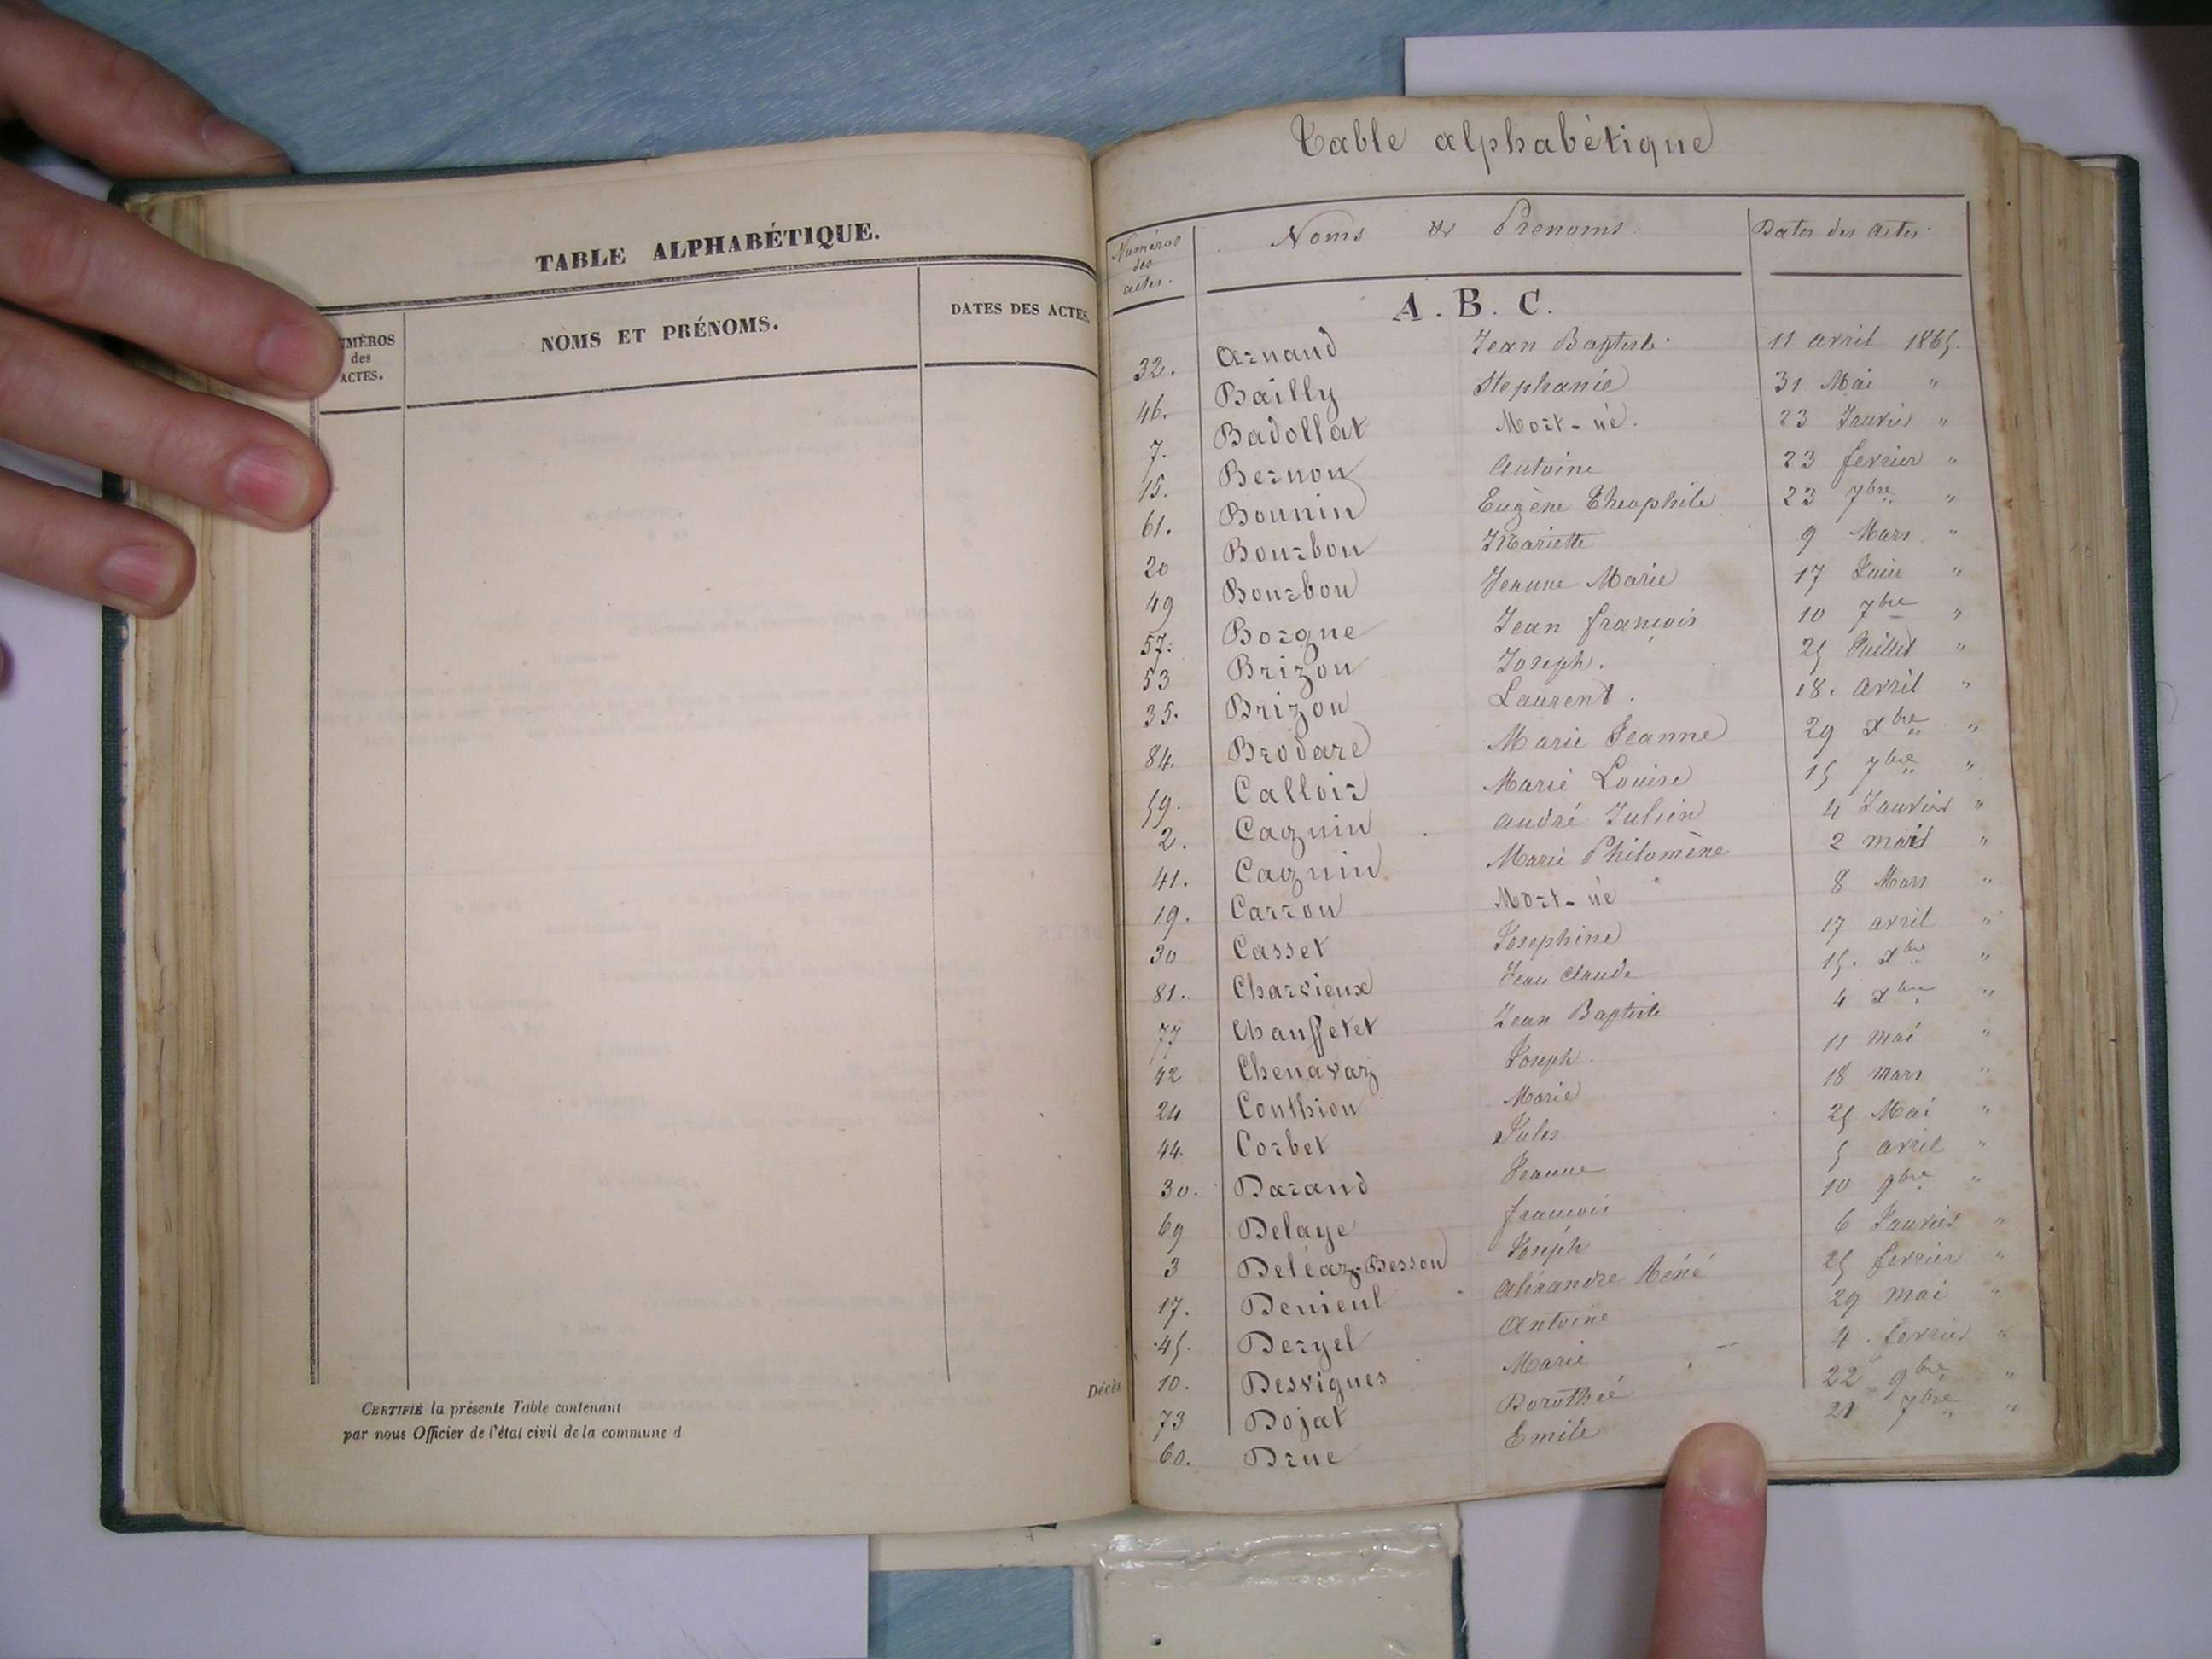 TABLE ALPHABÉTIQUE.
MÉROS
des
ACTES.
NOMS ET PRÉNOMS.
DATES DES ACTES.
CERTIFIÉ la présente Table contenant
par nous Officier de l'état civil de la commune d
Décès
Table alphabétique
Numéros
des
actes.
Noms & Prenoms.
Dates des Actes
A. B. C.
32. Arnaud Jean Baptiste 11 avril 1865.
46. Bailly Stephanie 31 Mai "
7. Badollat Mort-né. 23 Janvier "
15. Bernou Antoine 23 fevrier "
61. Bounin Eugène Theophile 23 7bre "
20 Bourbon Mariette 9 Mars "
49 Bourbon Jeanne Marie 17 Juin "
57. Borgne Jean françois 10 7bre "
53 Brizon Joseph. 25 Juillet "
35. Brizon Laurent. 18. avril "
84. Brodare Marie Jeanne 29 xbre "
59. Calloir Marie Louise 15 7bre "
2. Cagnin André Julien 4 Janvier "
41. Cagnin Marie Philomène 2 mai "
19. Carron Mort-né 8 Mars "
30 Casset Josephine 17 avril "
81. Charvieux Jean Claude 15. xbre "
77 Chauffetet Jean Baptiste 4 xbre "
42 Chenavaz Joseph. 11 mai "
24 Conthion Marie 18 mars "
44. Corbet Jules 25 Mai "
30. Darand Jeanne 5 avril "
69 Delaye françois 10 9bre "
3 Deléaz-Besson Joseph 6 Janvier "
17. Denieul Alexandre Réné 25 fevrier "
45. Deryel Antoine 29 mai "
10. Desvignes Marie 4. fevrier "
73 Dojat Dorothée 22 9bre "
60. Drue Emile 21 7bre "